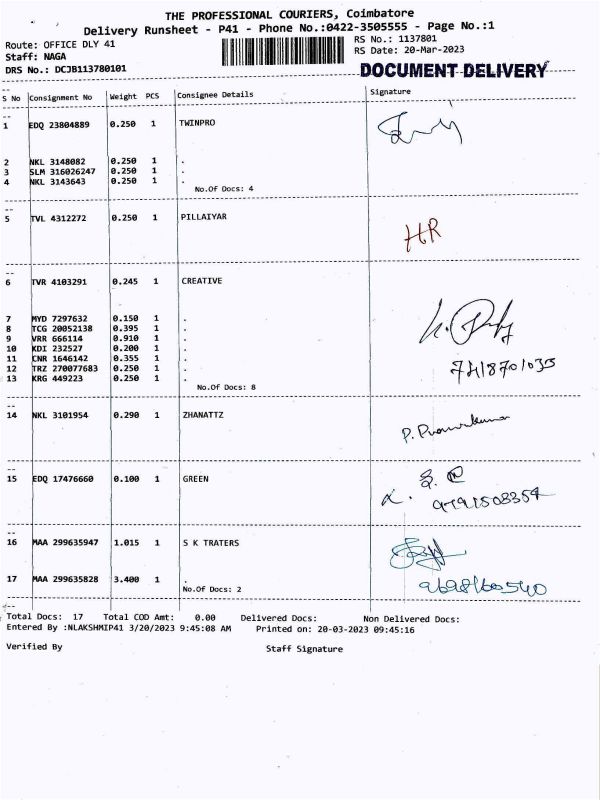 THE PROFESSIONAL COURIERS, Coimbatore
Delivery Runsheet - P41 - Phone No.:0422-3505555 - Page No.:1
Route: OFFICE DLY 41 RS No.: 1137801
Staff: NAGA RS Date: 20-Mar-2023
DRS No.: DCJB113780101 DOCUMENT DELIVERY
S No Consignment No Weight PCS Consignee Details Signature
1 EDQ 23804889 0.250 1 TWINPRO
2 NKL 3148082 0.250 1 .
3 SLM 316026247 0.250 1 .
4 NKL 3143643 0.250 1 .
No.Of Docs: 4
5 TVL 4312272 0.250 1 PILLAIYAR
HR
6 TVR 4103291 0.245 1 CREATIVE
7 MYD 7297632 0.150 1 .
8 TCG 20052138 0.395 1 .
9 VRR 666114 0.910 1 .
10 KDI 232527 0.200 1 .
11 CNR 1646142 0.355 1 .
12 TRZ 270077683 0.250 1 .
13 KRG 449223 0.250 1 .
No.Of Docs: 8
14 NKL 3101954 0.290 1 ZHANATTZ
15 EDQ 17476660 0.100 1 GREEN
16 MAA 299635947 1.015 1 S K TRATERS
17 MAA 299635828 3.400 1 .
No.Of Docs: 2
Total Docs: 17 Total COD Amt: 0.00 Delivered Docs: Non Delivered Docs:
Entered By :NLAKSHMIP41 3/20/2023 9:45:08 AM Printed on: 20-03-2023 09:45:16
Verified By Staff Signature